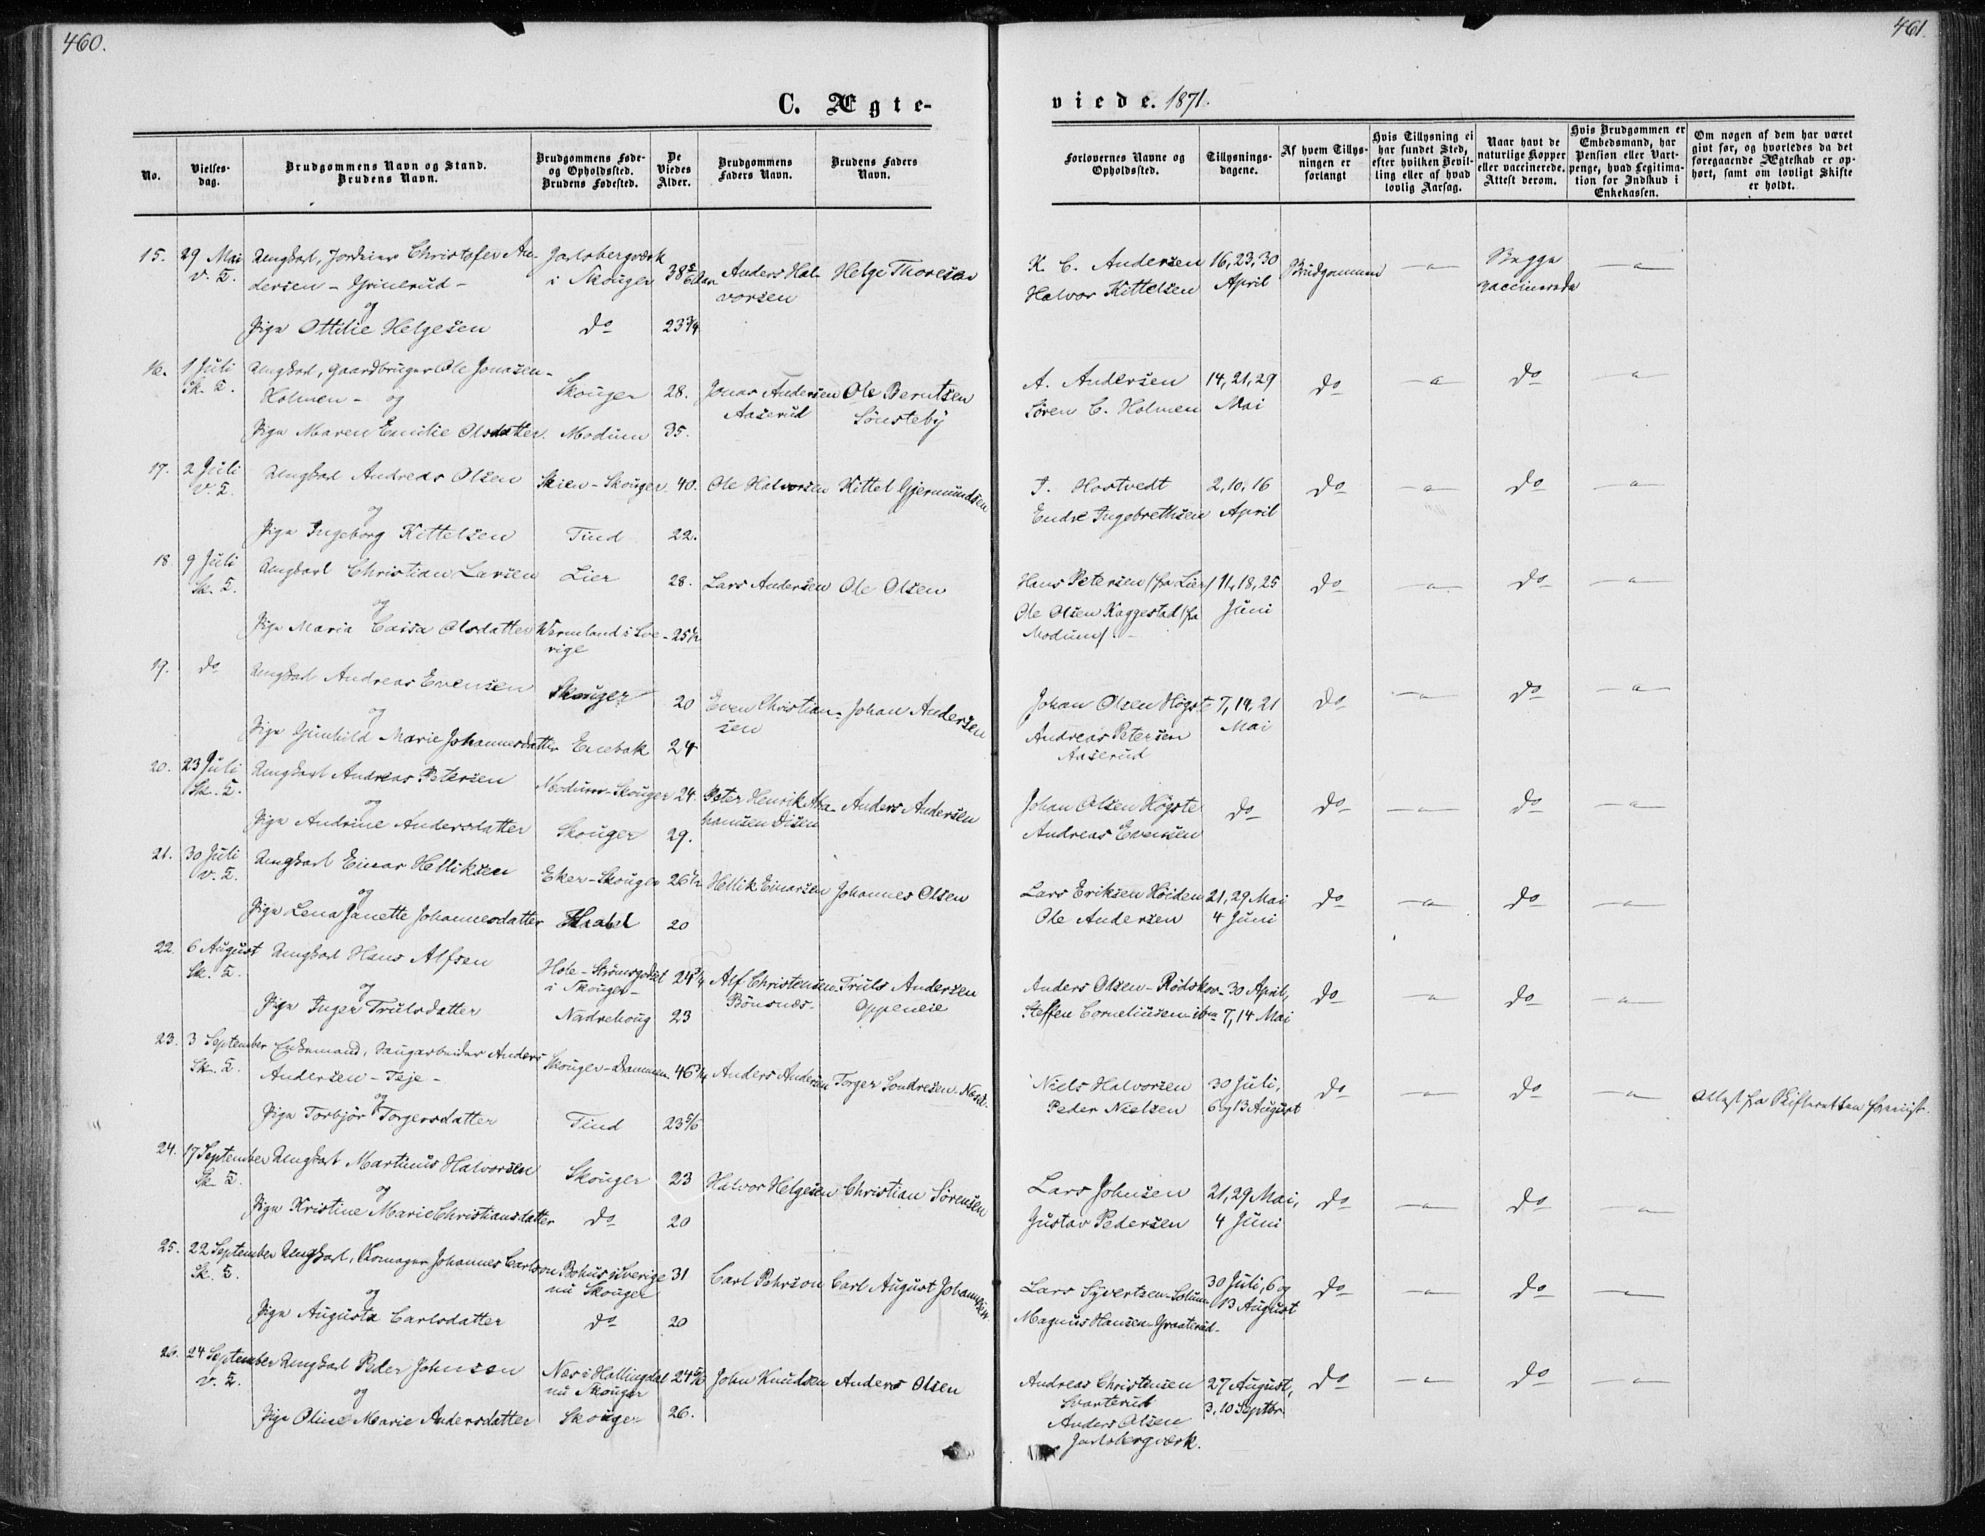 460.
461.
C. Ægte-
viede. 1871.
No.
Vielses-
dag.
Brudgommens Navn og Stand.
Brudens Navn.
Brudgommens Føde-
og Opholdssted.
Brudens Fødested.
De
Viedes
Alder.
Brudgommens
Faders Navn.
Brudens Faders
Navn.
Forlovernes Navne og
Opholdssted.
Tillysnings-
dagene.
Af hvem Tillys-
ningen er
forlangt
Hvis Tillysning ei
har fundet Sted,
efter hvilken Bevil-
ling eller af hvad
lovlig Aarsag.
Naar havt de
naturlige Kopper
eller vaccinerede.
Attest derom.
Hvis Brudgommen er
Embedsmand, har
Pension eller Vart-
penge, hvad Legitima-
tion for Indskud i
Enkekassen.
Om nogen af dem har været
givt før, og hvorledes da det
foregaaende Ægteskab er op-
hørt, samt om lovligt Skifte
er holdt.
15. 29 Mai Ungkarl, Christofer An- Jarlsbergværk
V. K. dersen - Grinerud - i Skouger 38 Anders Hal- Helge Thoresen
vorsen
og
Pige Ottilie Helgesen do 23 3/4
K. C. Andersen 16, 23, 30 Brudgommen — Begge —
Halvor Kittelsen April vaccinerede
16. 1 Juli Ungkarl, Gaardbruger Ole Jonasen-
Sk. K. Holmen - og Skouger 28. Jonas Andersen Ole Berntsen
Aaserud Sønsteby
Pige Maren Emilie Olsdatter. Modum 35.
A. Andersen 14, 21, 29 do — do —
Søren C. Holmen Mai
17. 2 Juli Ungkarl Andreas Olsen Skien-Skouger 40. Ole Halvorsen Kittel Gjermundsen
V. K.
og
Pige Ingeborg Kittelsen Tind 22.
T. Hostvedt 2, 10, 16 do — do —
Endre Ingebrethsen April
18 9 Juli Ungkarl Christian Larsen Lier 28. Lars Andersen Ole Olsen
Sk. K.
og
Pige Maria Caisa Olsdatter Wermland i Sve- 25 1/2
rige
Hans Petersen /fra Lier/ 11, 18, 25 do — do —
Ole Olsen Kaggestad /fra Juni
Modum/
19. do Ungkarl Andreas Evensen Skouger 20 Even Christian- Johan Andersen
sen
og
Pige Gunhild Marie Johannesdatter Enebak 24
Johan Olsen Høgste 7, 14, 21 do — do —
Andreas Petersen Mai
Aaserud
20. 23 Juli Ungkarl Andreas Petersen Modum-Skouger 24. Peter Henrik Anders Andersen
Sk. K. hansen Disen
og
Pige Andrine Andersdatter Skouger 29.
Johan Olsen Høgste do do — do —
Andreas Evensen
21. 30 Juli Ungkarl Einar Helliksen Eker-Skouger 26 1/2 Hellik Einarsen Johannes Olsen
V. K.
og
Pige Lena Janette Johannesdatter 20
Lars Eriksen Høiden 21, 29 Mai do — do —
Ole Andersen 4 Juni
22. 6 August Ungkarl Hans Alfsen Hole-Strømsgodset 24 Alf Christensen Truls Andersen
Sk. K. i Skouger- Bønsnæs. Oppeneie
og
Pige Inger Trulsdatter Nadrehoug 23
Anders Olsen-Rødskov 30 April, do — do —
Steffen Corneliusen 7, 14 Mai
23. 3 September Enkemand, Saugarbeider Anders Skouger-Drammen 46 Anders Andersen Torger Sondresen
Sk. K. Andersen - Teje -
og
Pige Torbjør Torgersdatter Tind 23 5/6
Niels Halvorsen 30 Juli, do — do —
Peder Nielsen 6 og 13 August
Attest fra Skifteretten foreviist.
24. 17 September Ungkarl Martinus Halvorsen Skouger 23 Halvor Helgesen Christian Sørensen
Sk. K.
og
Pige Kristine Marie Christiansdatter do 20
Lars Johnsen 21, 29 Mai, do — do —
Gustav Pedersen 4 Juni
25. 22 September Ungkarl, Skomager Johannes Carlsson Bohus i Sverige 31 Carl Pehrson Carl August Johannesen
Sk. K. nu Skouger
og
Pige Augusta Carlsdatter do 20
Lars Syvertsen-Solum 30 Juli, 6 og do — do —
Magnus Hansen-Graaterud. 13 August
26. 24 September Ungkarl Peder Johnsen Næs i Hallingdal 24 5/6 John Knudsen Anders Olsen
V. K. nu Skouger
og
Pige Oline Marie Andersdatter Skouger 26.
Andreas Christensen 27 August, do — do —
Svarterud 3, 10 Septbr.
Anders Olsen
Jarlsbergværk.